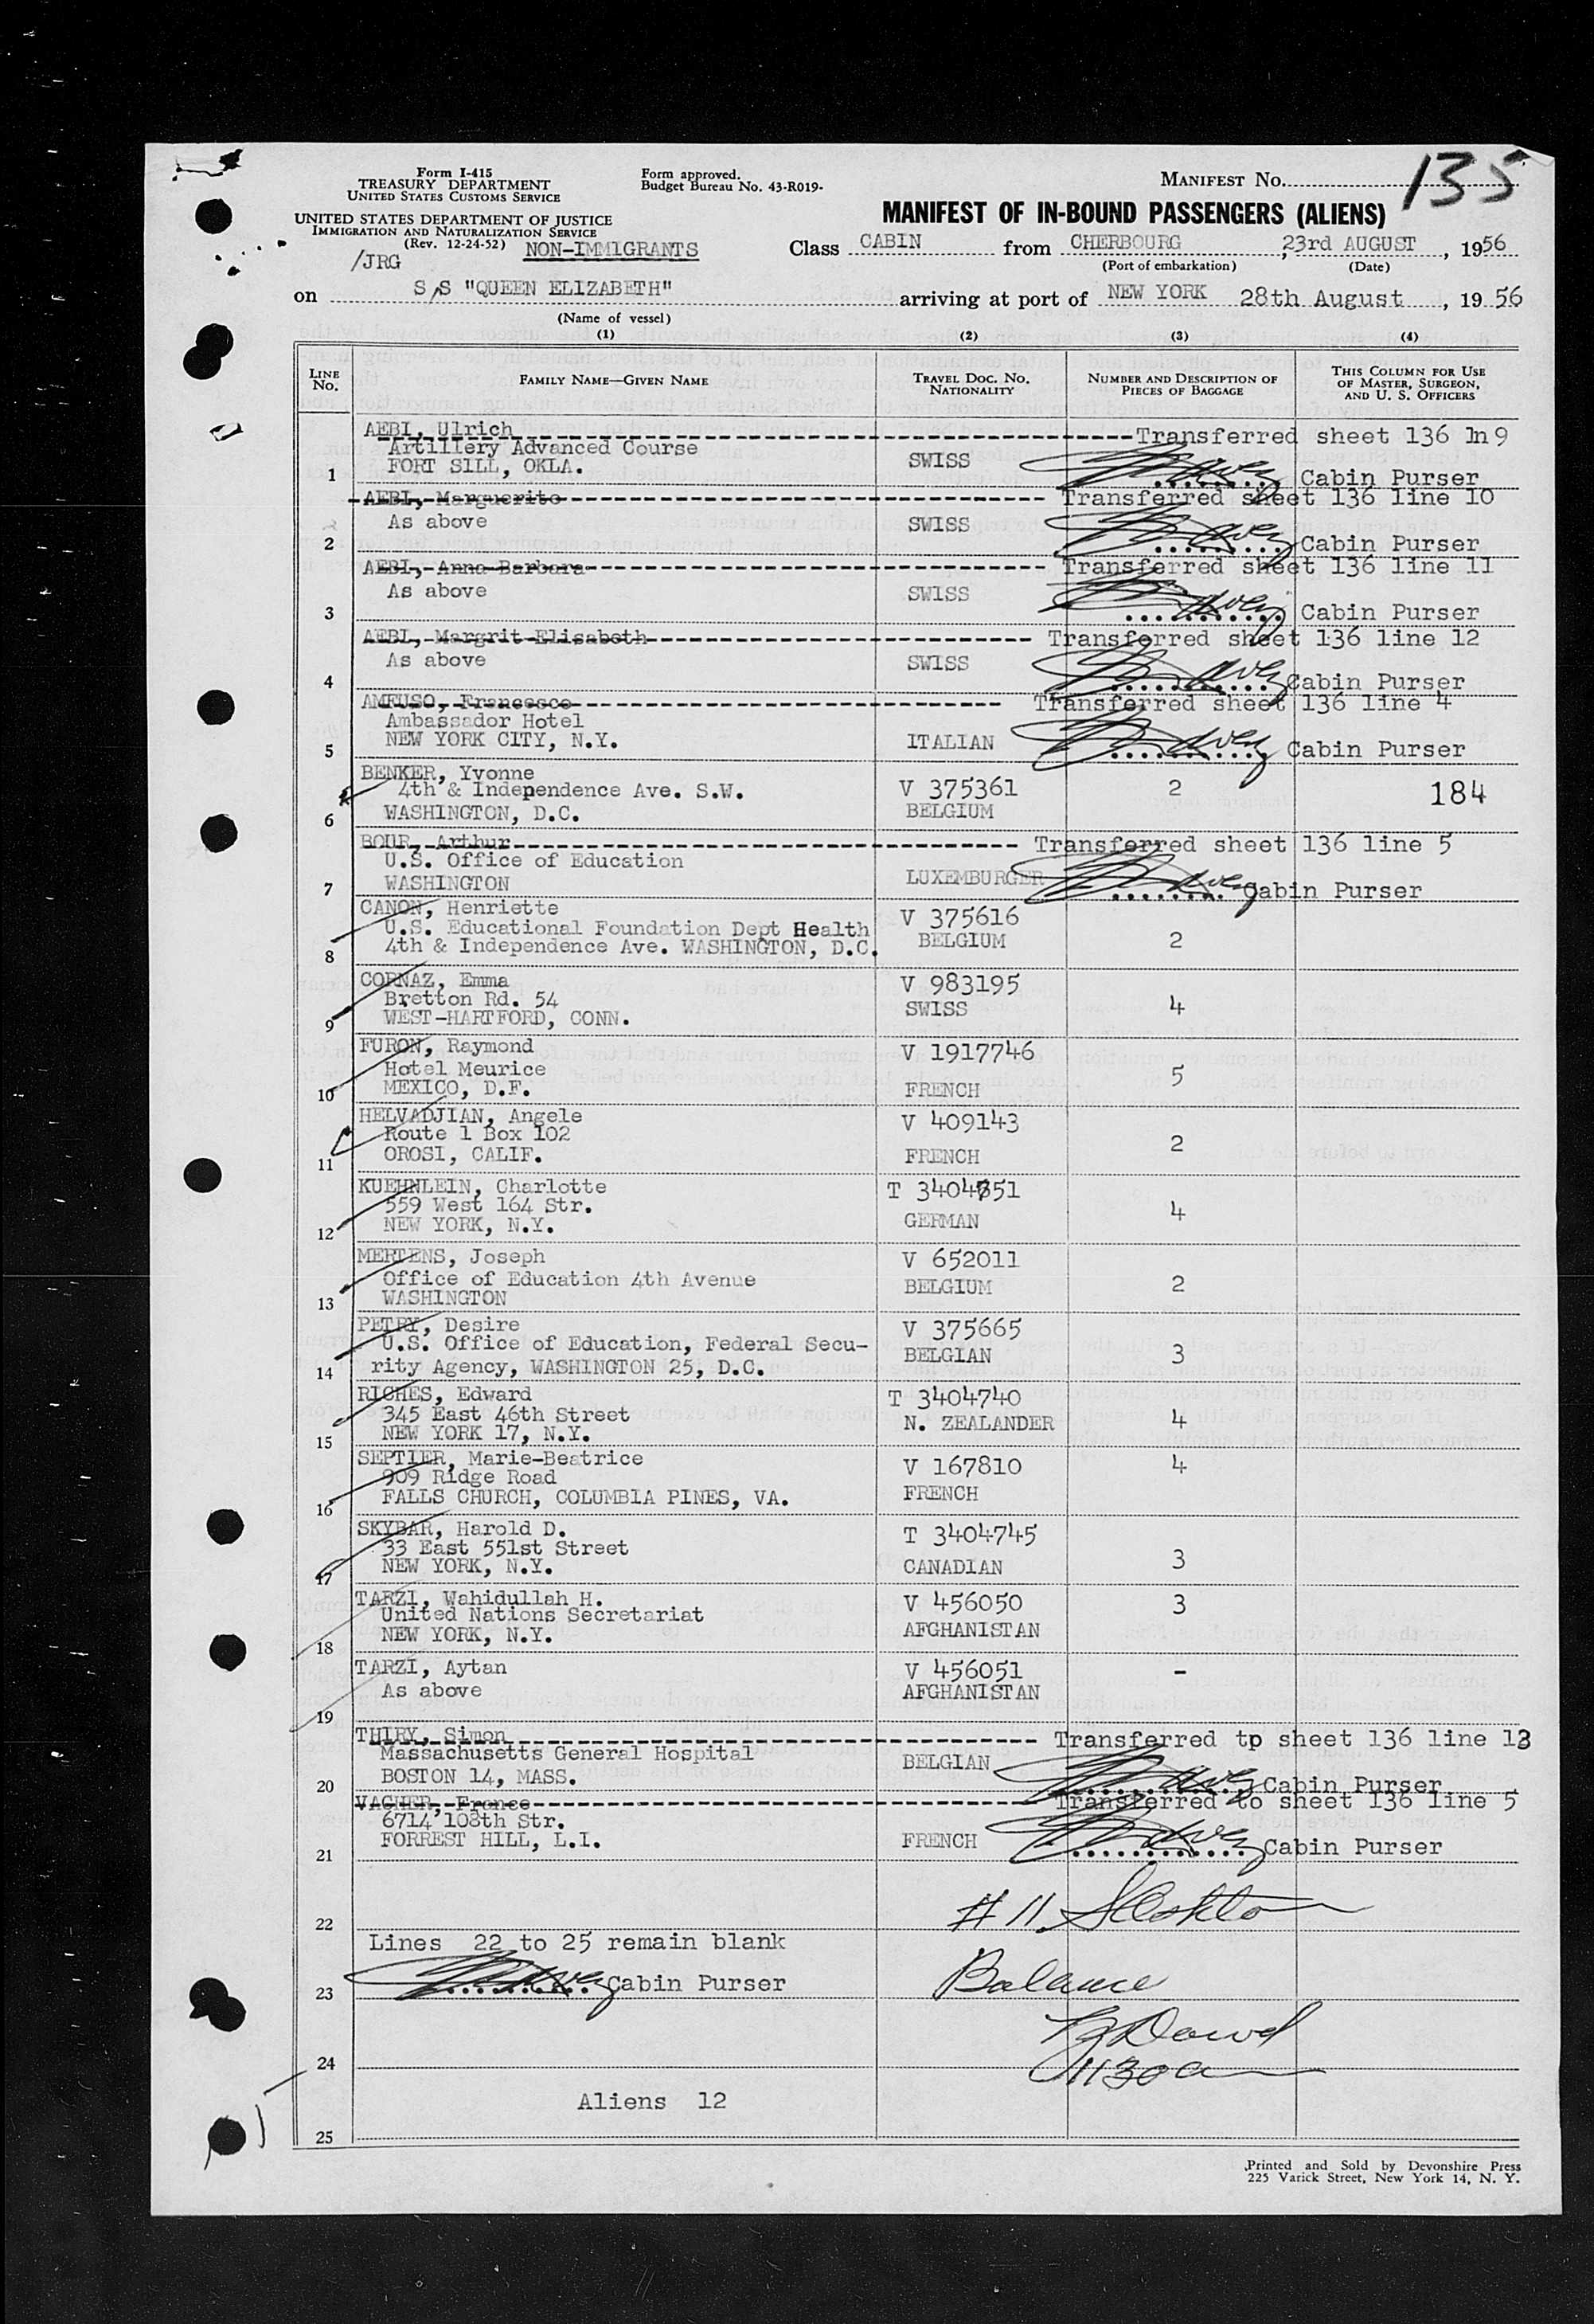 Form I-415
TREASURY DEPARTMENT
UNITED STATES CUSTOMS SERVICE
UNITED STATES DEPARTMENT OF JUSTICE
IMMIGRATION AND NATURALIZATION SERVICE
(Rev. 12-24-52)
Form approved.
Budget Bureau No. 43-R019-
MANIFEST No. 135
MANIFEST OF IN-BOUND PASSENGERS (ALIENS)
/JRG NON-IMMIGRANTS
Class CABIN from CHERBOURG, 23rd AUGUST, 1956
(Port of embarkation) (Date)
on S/S "QUEEN ELIZABETH" arriving at port of NEW YORK 28th August, 1956
(Name of vessel)
(1) (2) (3) (4)
LINE No. FAMILY NAME—GIVEN NAME TRAVEL DOC. NO. NATIONALITY NUMBER AND DESCRIPTION OF PIECES OF BAGGAGE THIS COLUMN FOR USE OF MASTER, SURGEON, AND U. S. OFFICERS
AEBI, Ulrich Transferred sheet 136 ln9
Artillery Advanced Course
1 FORT SILL, OKLA. SWISS Cabin Purser
AEBI, Marguerite Transferred sheet 136 line 10
As above SWISS
2 Cabin Purser
AEBI, Anna Barbara Transferred sheet 136 line 11
As above SWISS
3 Cabin Purser
AEBI, Margrit Elisabeth Transferred sheet 136 line 12
As above SWISS
4 Cabin Purser
AMFUSO, Francesco Transferred sheet 136 line 4
Ambassador Hotel
5 NEW YORK CITY, N.Y. ITALIAN Cabin Purser
BENKER, Yvonne
4th & Independence Ave. S.W. V 375361 2 184
6 WASHINGTON, D.C. BELGIUM
BOUR, Arthur Transferred sheet 136 line 5
U.S. Office of Education
7 WASHINGTON LUXEMBURGER Cabin Purser
CANON, Henriette V 375616
U.S. Educational Foundation Dept Health
8 4th & Independence Ave. WASHINGTON, D.C. BELGIUM 2
CORNAZ, Emma V 983195
Bretton Rd. 54 SWISS 4
9 WEST-HARTFORD, CONN.
FURON, Raymond V 1917746
Hotel Meurice 5
10 MEXICO, D.F. FRENCH
HELVADJIAN, Angele V 409143
Route 1 Box 102 2
11 OROSI, CALIF. FRENCH
KUEHNLEIN, Charlotte
559 West 164 Str. 4
12 NEW YORK, N.Y. GERMAN
MERTENS, Joseph V 652011
Office of Education 4th Avenue BELGIUM 2
13 WASHINGTON
PETRY, Desire V 375665
U.S. Office of Education, Federal Secu-
14 rity Agency, WASHINGTON 25, D.C. BELGIAN 3
RICHES, Edward T 3404740
345 East 46th Street N. ZEALANDER 4
15 NEW YORK 17, N.Y.
SEPTIER, Marie-Beatrice V 167810 4
909 Ridge Road
16 FALLS CHURCH, COLUMBIA PINES, VA. FRENCH
SKYBAR, Harold D. T 3404745
33 East 551st Street 3
17 NEW YORK, N.Y. CANADIAN
TARZI, Wahidullah H. V 456050 3
United Nations Secretariat
18 NEW YORK, N.Y. AFGHANISTAN
TARZI, Aytan V 456051 -
As above AFGHANISTAN
19
THIRY, Simon Transferred tp sheet 136 line 13
Massachusetts General Hospital BELGIAN
20 BOSTON 14, MASS. Cabin Purser
VACHER, France Transferred to sheet 136 line 5
6714 108th Str.
21 FORREST HILL, L.I. FRENCH Cabin Purser
22 # 11
Lines 22 to 25 remain blank
23 Cabin Purser Balance
24 1130 a
Aliens 12
25
Printed and Sold by Devonshire Press
225 Varick Street, New York 14, N. Y.